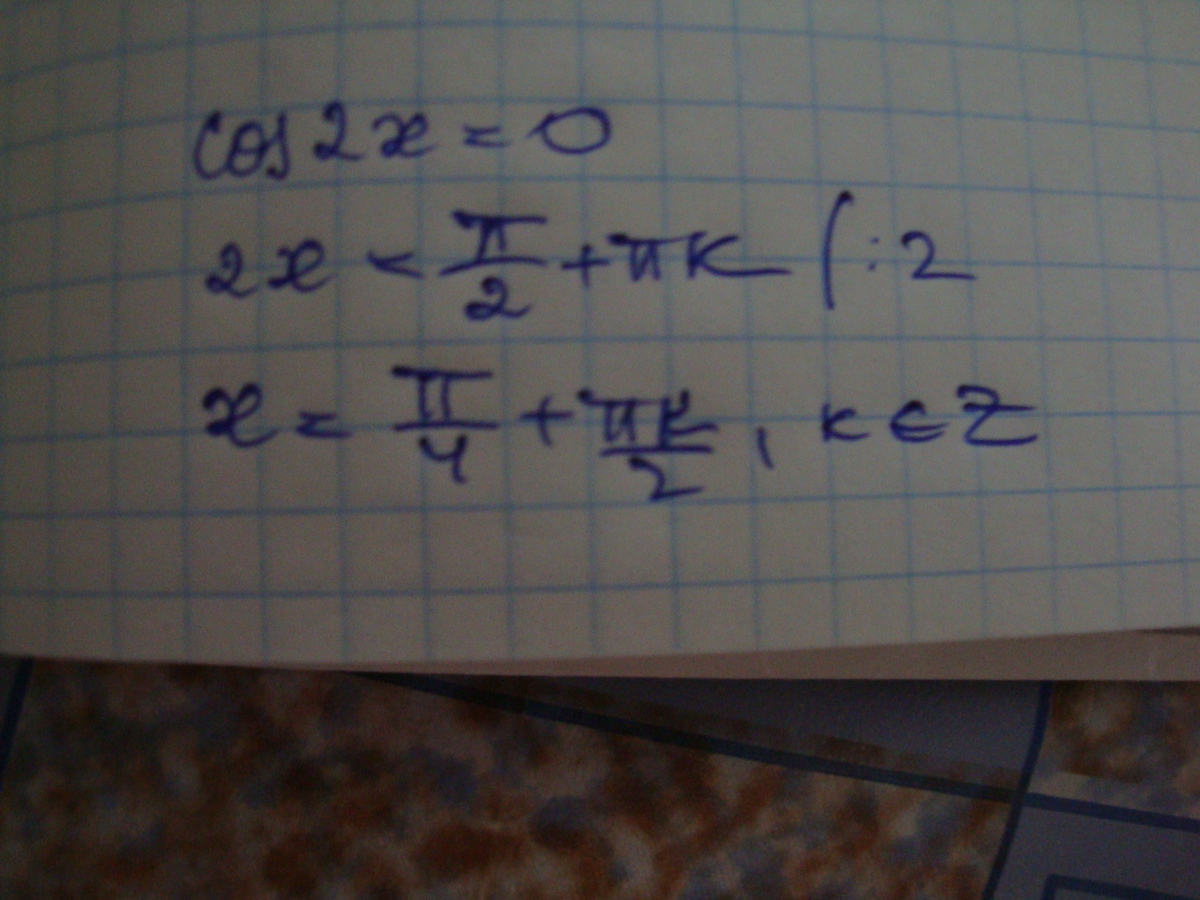 cos 2x = 0
2x = π/2 + πk | : 2
x = π/4 + πk/2 , k ∈ Z